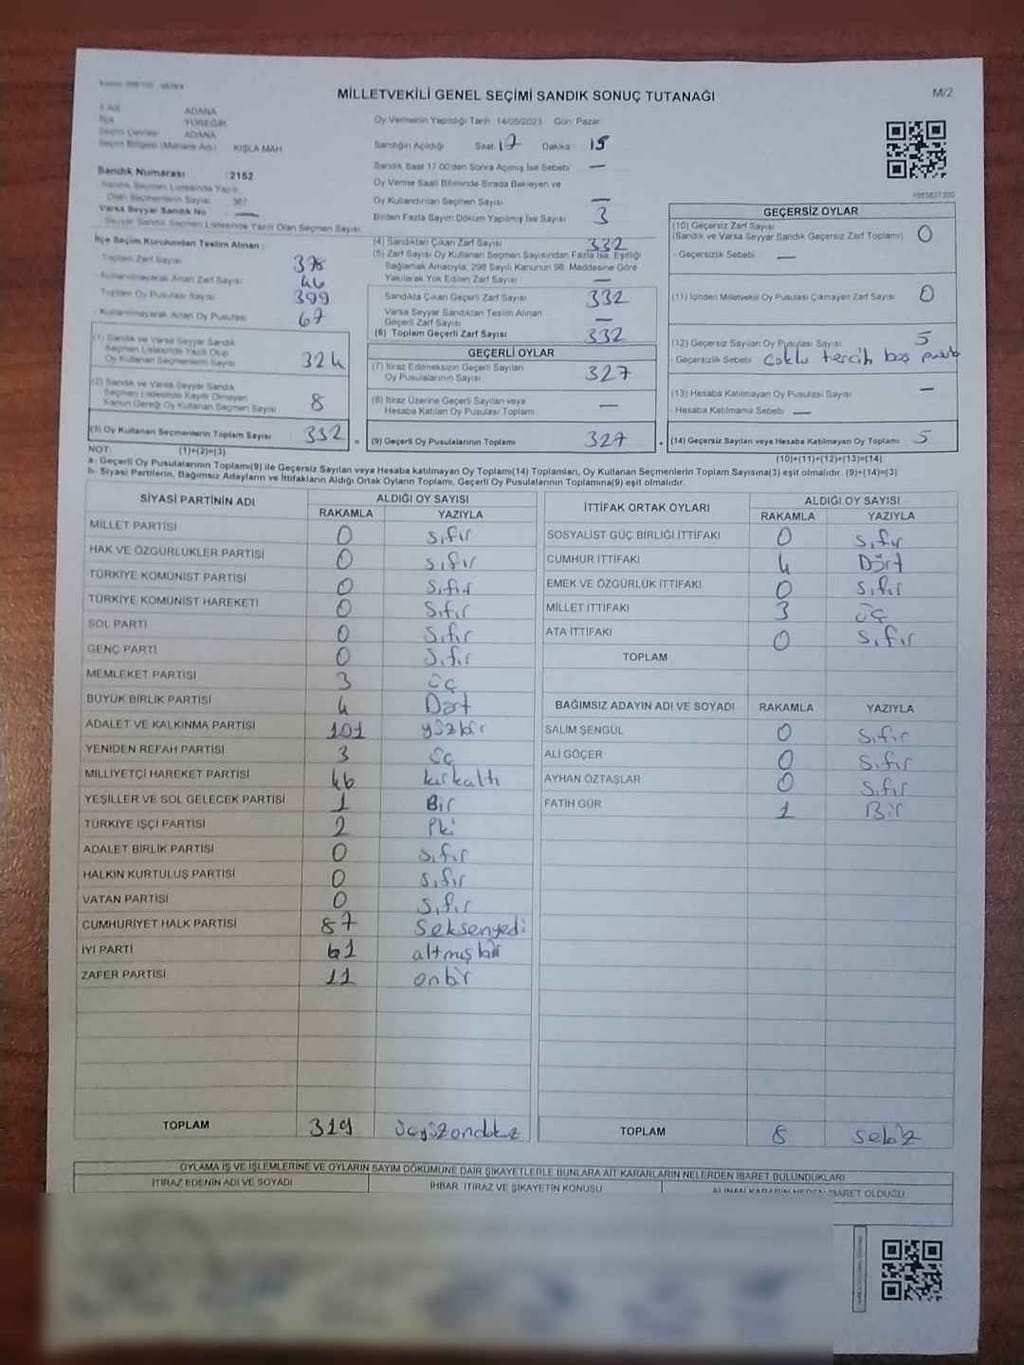 MİLLETVEKİLİ GENEL SEÇİMİ SANDIK SONUÇ TUTANAĞI
M/2
ADANA
YÜREĞİR
Seçim Çevresi ADANA
KIŞLA MAH
Oy Vermenin Yapıldığı Tarih: 14/05/2023 Gün: Pazar
Sandığın Açıldığı Saat 17 Dakika 15
Sandık Saat 17.00'den Sonra Açılmış İse Sebebi —
Oy Verme Saati Bitiminde Sırada Bekleyen ve
Oy Kullandırılan Seçmen Sayısı —
Birden Fazla Sayım Döküm Yapılmış İse Sayısı 3
Sandık Numarası :2152
Sandık Seçmen Listesinde Yazılı
Olan Seçmenlerin Sayısı 367
Varsa Seyyar Sandık No —
Seyyar Sandık Seçmen Listesinde Yazılı Olan Seçmen Sayısı
İlçe Seçim Kurulundan Teslim Alınan :
Toplam Zarf Sayısı
Kullanılmayarak Artan Zarf Sayısı 46
Toplam Oy Pusulası Sayısı 399
Kullanılmayarak Artan Oy Pusulası 67
(1) Sandık ve Varsa Seyyar Sandık
Seçmen Listesinde Yazılı Olup
Oy Kullanan Seçmenlerin Sayısı 324
(2) Sandık ve Varsa Seyyar Sandık
Seçmen Listesinde Kayıtlı Olmayan
Kanun Gereği Oy Kullanan Seçmen Sayısı 8
(3) Oy Kullanan Seçmenlerin Toplam Sayısı 332
(1)+(2)=(3)
(4) Sandıktan Çıkan Zarf Sayısı 332
(5) Zarf Sayısı Oy Kullanan Seçmen Sayısından Fazla İse, Eşitliği
Sağlamak Amacıyla, 298 Sayılı Kanunun 98. Maddesine Göre
Yakılarak Yok Edilen Zarf Sayısı —
Sandıkta Çıkan Geçerli Zarf Sayısı 332
Varsa Seyyar Sandıktan Teslim Alınan
Geçerli Zarf Sayısı —
(6) Toplam Geçerli Zarf Sayısı 332
GEÇERLİ OYLAR
(7) İtiraz Edilmeksizin Geçerli Sayılan
Oy Pusulalarının Sayısı 327
(8) İtiraz Üzerine Geçerli Sayılan veya
Hesaba Katılan Oy Pusulası Toplamı —
(9) Geçerli Oy Pusulalarının Toplamı 327
GEÇERSİZ OYLAR
(10) Geçersiz Zarf Sayısı
(Sandık ve Varsa Seyyar Sandık Geçersiz Zarf Toplamı) 0
- Geçersizlik Sebebi: —
(11) İçinden Milletvekili Oy Pusulası Çıkmayan Zarf Sayısı 0
(12) Geçersiz Sayılan Oy Pusulası Sayısı 5
- Geçersizlik Sebebi: Çoklu tercih boş
(13) Hesaba Katılmayan Oy Pusulası Sayısı —
- Hesaba Katılmama Sebebi: —
(14) Geçersiz Sayılan veya Hesaba Katılmayan Oy Toplamı 5
(10)+(11)+(12)+(13)=(14)
NOT:
a- Geçerli Oy Pusulalarının Toplamı(9) ile Geçersiz Sayılan veya Hesaba katılmayan Oy Toplamı(14) Toplamları, Oy Kullanan Seçmenlerin Toplam Sayısına(3) eşit olmalıdır. (9)+(14)=(3)
b- Siyasi Partilerin, Bağımsız Adayların ve İttifakların Aldığı Ortak Oyların Toplamı, Geçerli Oy Pusulalarının Toplamına(9) eşit olmalıdır.
SİYASİ PARTİNİN ADI ALDIĞI OY SAYISI
RAKAMLA YAZIYLA
MİLLET PARTİSİ 0 Sıfır
HAK VE ÖZGÜRLÜKLER PARTİSİ 0 Sıfır
TÜRKİYE KOMÜNİST PARTİSİ 0 Sıfır
TÜRKİYE KOMÜNİST HAREKETİ 0 Sıfır
SOL PARTİ 0 Sıfır
GENÇ PARTİ 0 Sıfır
MEMLEKET PARTİSİ 3 üç
BÜYÜK BİRLİK PARTİSİ 4 Dört
ADALET VE KALKINMA PARTİSİ 101 yüzbir
YENİDEN REFAH PARTİSİ 3 üç
MİLLİYETÇİ HAREKET PARTİSİ 46 kırkaltı
YEŞİLLER VE SOL GELECEK PARTİSİ 1 Bir
TÜRKİYE İŞÇİ PARTİSİ 2 İki
ADALET BİRLİK PARTİSİ 0 Sıfır
HALKIN KURTULUŞ PARTİSİ 0 Sıfır
VATAN PARTİSİ 0 Sıfır
CUMHURİYET HALK PARTİSİ 87 Seksenyedi
İYİ PARTİ 61 altmışbir
ZAFER PARTİSİ 11 onbir
TOPLAM 319 üçyüzondokuz
İTTİFAK ORTAK OYLARI ALDIĞI OY SAYISI
RAKAMLA YAZIYLA
SOSYALİST GÜÇ BİRLİĞİ İTTİFAKI 0 Sıfır
CUMHUR İTTİFAKI 4 Dört
EMEK VE ÖZGÜRLÜK İTTİFAKI 0 Sıfır
MİLLET İTTİFAKI 3 üç
ATA İTTİFAKI 0 Sıfır
TOPLAM
BAĞIMSIZ ADAYIN ADI VE SOYADI RAKAMLA YAZIYLA
SALİM ŞENGÜL 0 Sıfır
ALİ GÖÇER 0 Sıfır
AYHAN ÖZTAŞLAR 0 Sıfır
FATİH GÜR 1 Bir
TOPLAM 8 sekiz
OYLAMA İŞ VE İŞLEMLERİNE VE OYLARIN SAYIM DÖKÜMÜNE DAİR ŞİKAYETLERLE BUNLARA AİT KARARLARIN NELERDEN İBARET BULUNDUKLARI
İTİRAZ EDENİN ADI VE SOYADI İHBAR, İTİRAZ VE ŞİKAYETİN KONUSU ALINAN KARARIN NEDEN İBARET OLDUĞU